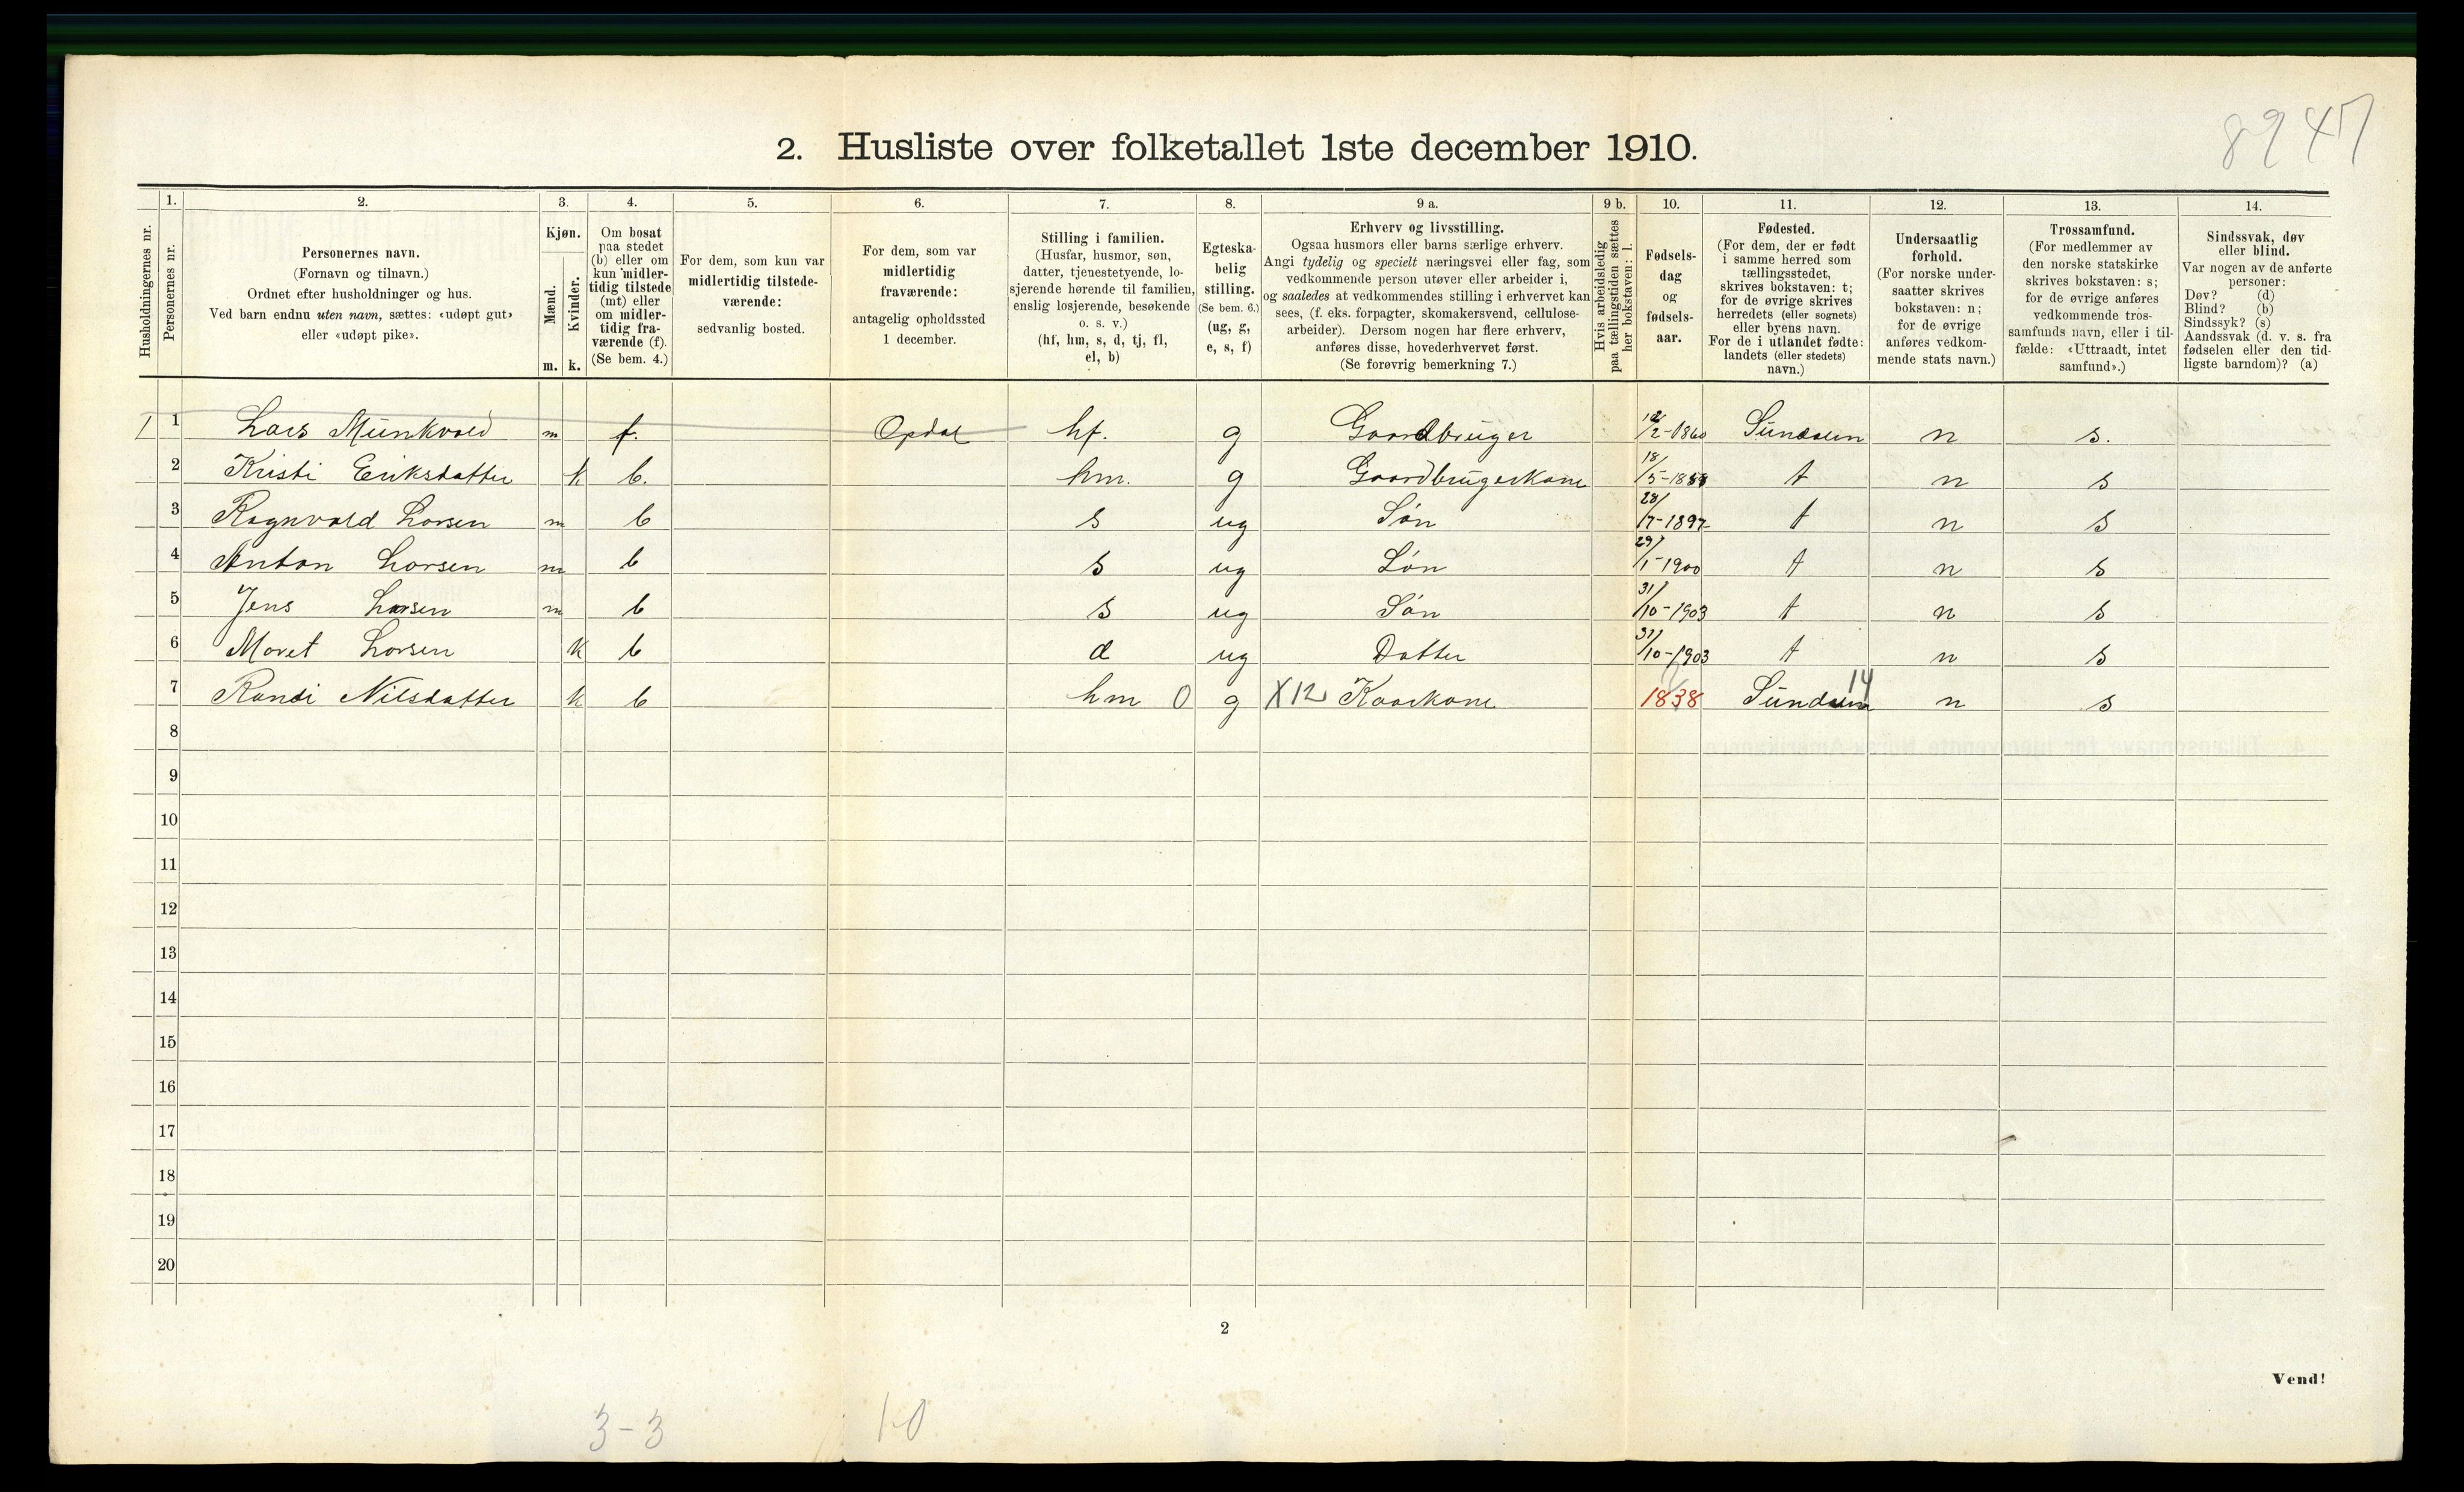 8947
2. Husliste over folketallet 1ste december 1910.
Husholdningernes nr.
1. Personernes nr.
2. Personernes navn. (Fornavn og tilnavn.) Ordnet efter husholdninger og hus. Ved barn endnu uten navn, sættes: «udøpt gut» eller «udøpt pike».
3. Kjøn. Mænd. m. Kvinder. k.
4. Om bosat paa stedet (b) eller om kun midlertidig tilstede (mt) eller om midlertidig fraværende (f). (Se bem. 4.)
5. For dem, som kun var midlertidig tilstedeværende: sedvanlig bosted.
6. For dem, som var midlertidig fraværende: antagelig opholdssted 1 december.
7. Stilling i familien. (Husfar, husmor, søn, datter, tjenestetyende, losjerende hørende til familien, enslig losjerende, besøkende o. s. v.) (hf, hm, s, d, tj, fl, el, b)
8. Egteskabelig stilling. (Se bem. 6.) (ug, g, e, s, f)
9 a. Erhverv og livsstilling. Ogsaa husmors eller barns særlige erhverv. Angi tydelig og specielt næringsvei eller fag, som vedkommende person utøver eller arbeider i, og saaledes at vedkommendes stilling i erhvervet kan sees, (f. eks. forpagter, skomakersvend, cellulosearbeider). Dersom nogen har flere erhverv, anføres disse, hovederhvervet først. (Se forøvrig bemerkning 7.)
9 b. Hvis arbeidsledig paa tællingstiden sættes her bokstaven: l.
10. Fødselsdag og fødselsaar.
11. Fødested. (For dem, der er født i samme herred som tællingsstedet, skrives bokstaven: t; for de øvrige skrives herredets (eller sognets) eller byens navn. For de i utlandet fødte: landets (eller stedets) navn.)
12. Undersaatlig forhold. (For norske undersaatter skrives bokstaven: n; for de øvrige anføres vedkommende stats navn.)
13. Trossamfund. (For medlemmer av den norske statskirke skrives bokstaven: s; for de øvrige anføres vedkommende trossamfunds navn, eller i tilfælde: «Uttraadt, intet samfund».)
14. Sindssvak, døv eller blind. Var nogen av de anførte personer: Døv? (d) Blind? (b) Sindssyk? (s) Aandssvak (d. v. s. fra fødselen eller den tidligste barndom)? (a)
1 1 Lars Munkvold m f. Opdal hf. g Gaardbruger 12/2-1860 Sundalen n s.
2 Kristi Eriksdatter k b. hm. g Gaardbrugerkone 18/5-1858 t n s
3 Ragnvald Larsen m b s ug Søn 28/7-1897 t n s
4 Anton Larsen m b s ug Søn 29/1-1900 t n s
5 Jens Larsen m b s ug Søn 31/10-1903 t n s
6 Maret Larsen k b d ug Datter 31/10-1903 t n s
7 Randi Nilsdatter k b hm 0 g X12 Kaarkone 1838 Sundalen 14 n s
8
9
10
11
12
13
14
15
16
17
18
19
20
2
Vend!
3-3 1-0